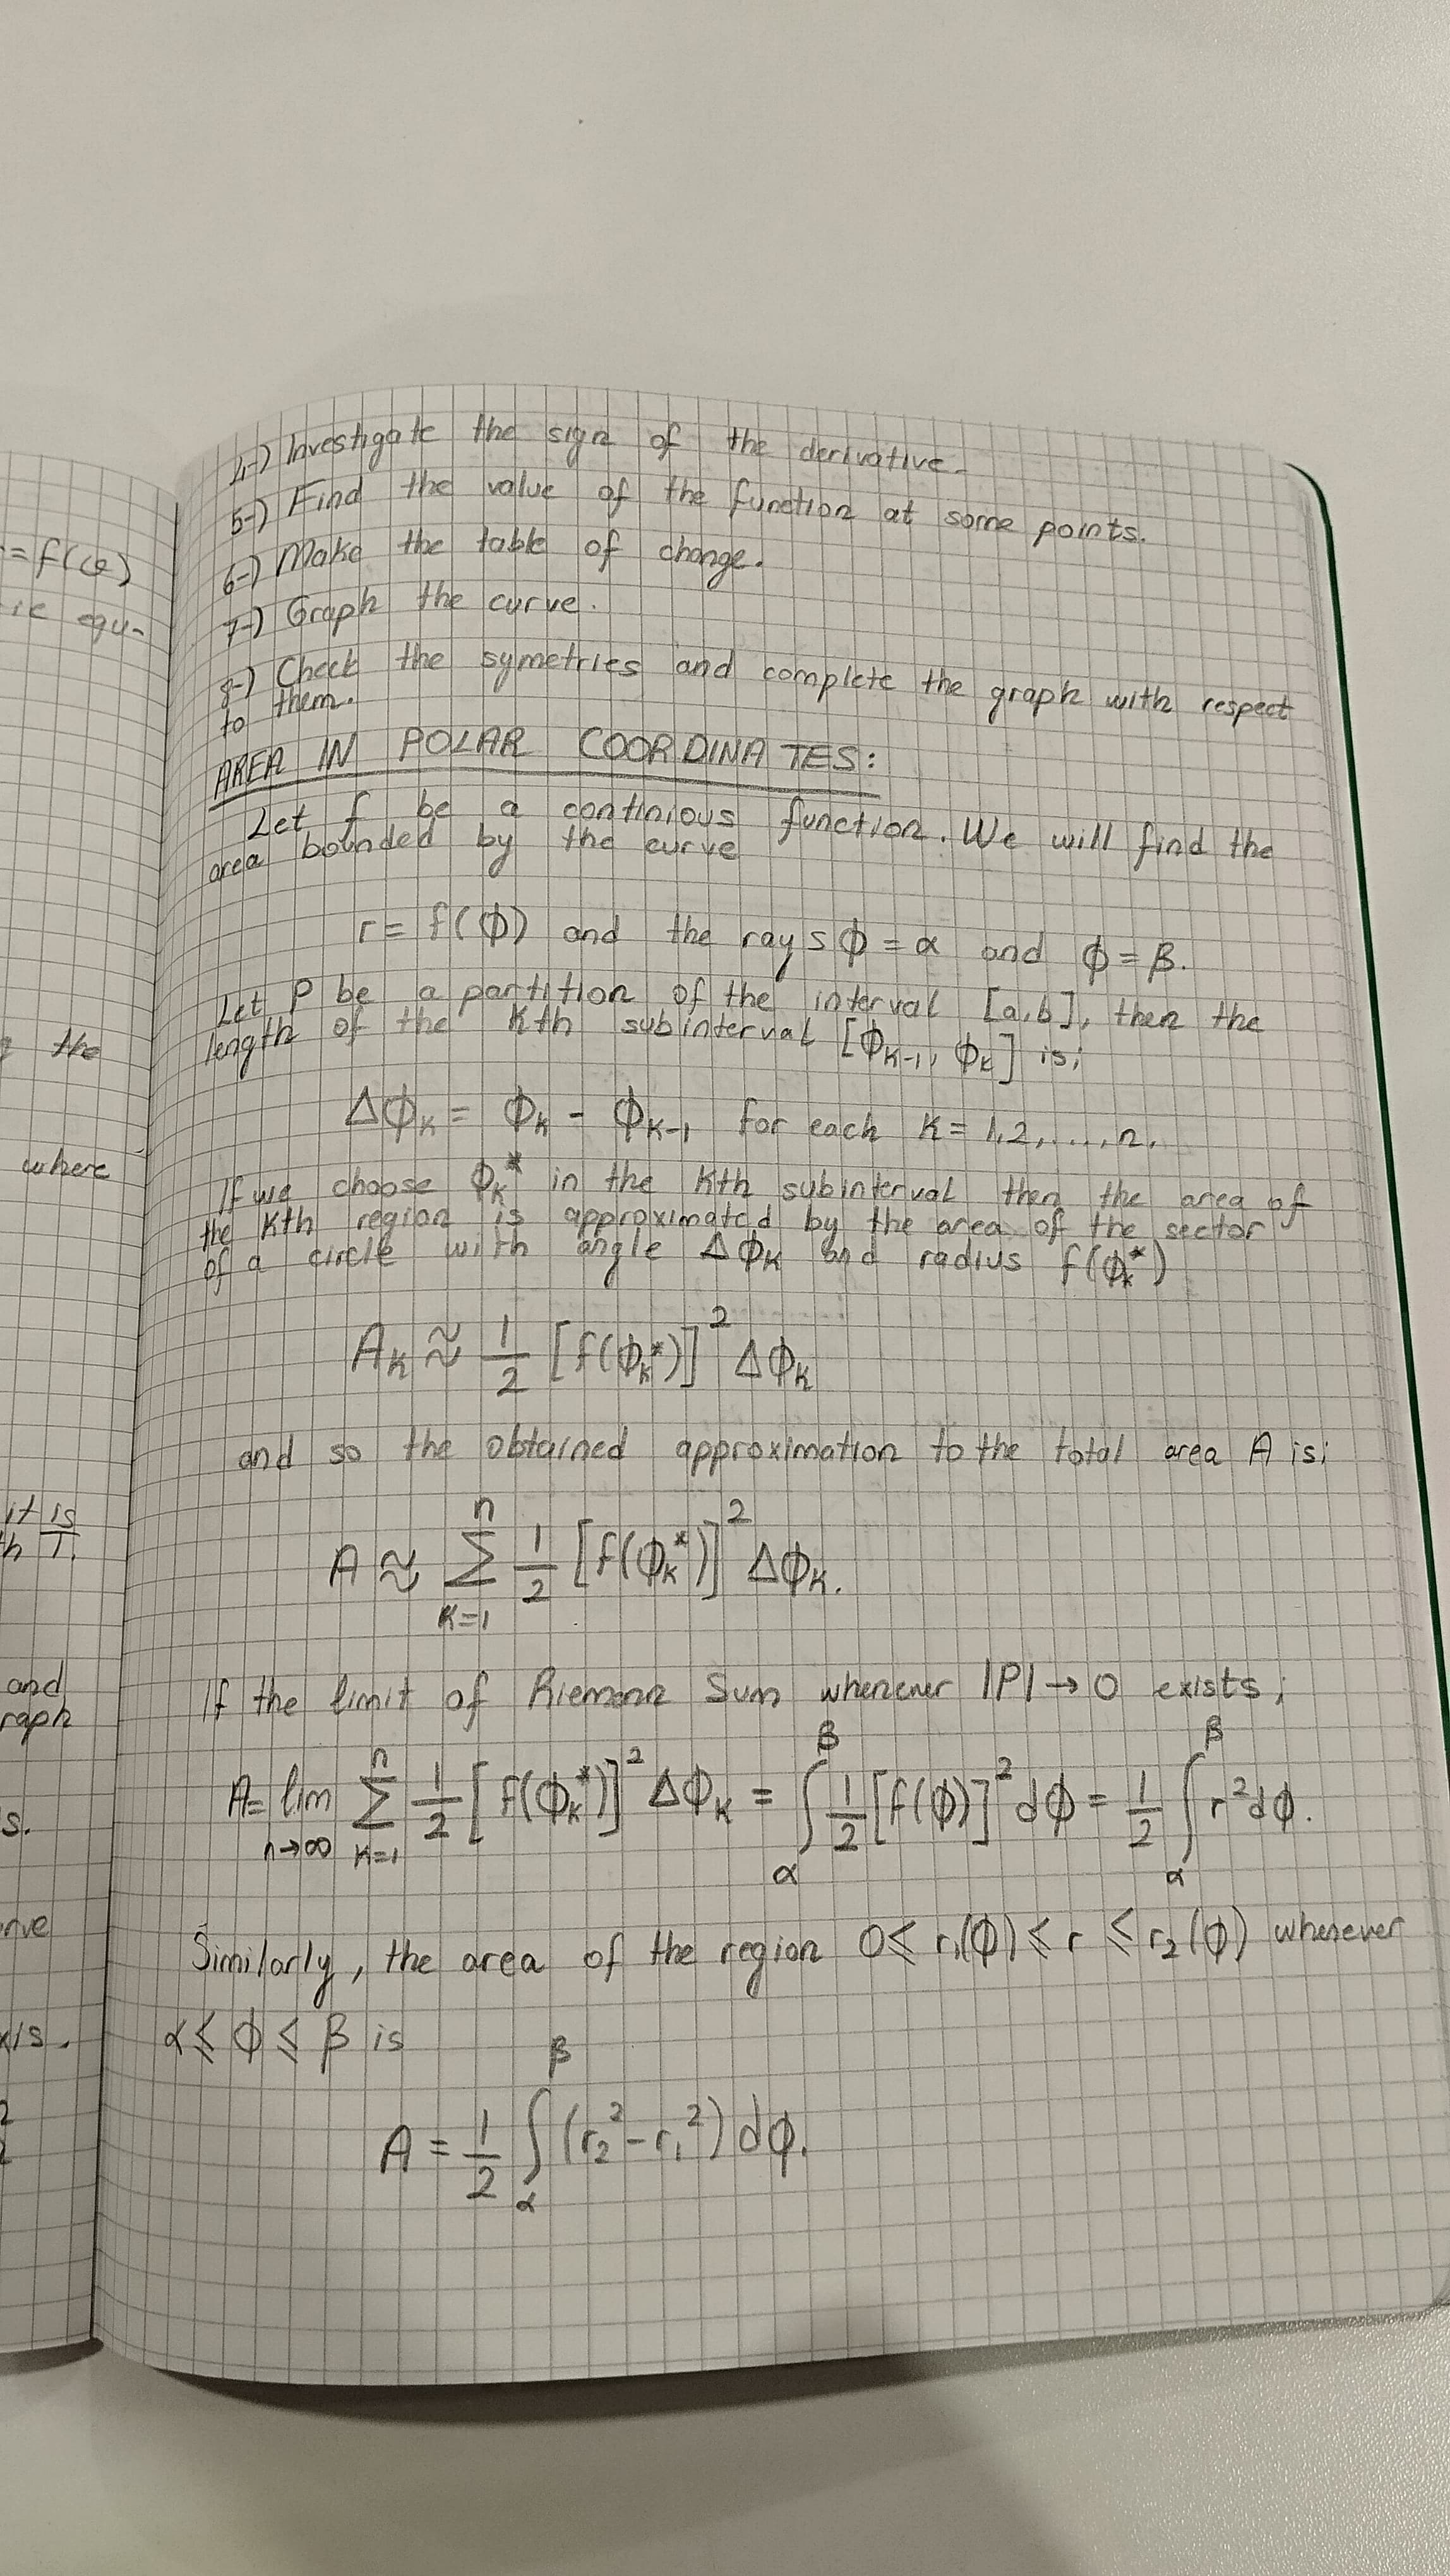 = f(φ)
ic equ-
the
where
it is
th 1.
and
raph
s.
rve
xis.
2
2
4-) Investigate the sign of the derivative.
5-) Find the value of the function at some points.
6-) Make the table of change.
7-) Graph the curve.
8-) Check the symetries and complete the graph with respect
to them.
AREA IN POLAR COORDINATES:
Let f be a continious function. We will find the
area bounded by the curve
r = f(ϕ) and the rays ϕ = α and ϕ = β.
Let P be a partition of the interval [a,b], then the
length of the kth subinterval [ϕₖ₋₁, ϕₖ] is;
Δϕₖ = ϕₖ - ϕₖ₋₁ for each k = 1,2,...,n.
If we choose ϕₖ* in the kth subinterval then the area of
the kth region is approximated by the area of the sector
of a circle with angle Δϕₖ and radius f(ϕₖ*)
Aₖ ≈ 1/2 [f(ϕₖ*)]² Δϕₖ
and so the obtained approximation to the total area A is;
A ≈ ∑ₖ₌₁ⁿ 1/2 [f(ϕₖ*)]² Δϕₖ.
If the limit of Riemann Sum whenever |P| → 0 exists;
A = lim n→∞ ∑ₖ₌₁ⁿ 1/2 [f(ϕₖ*)]² Δϕₖ = ∫_α^β 1/2 [f(ϕ)]² dϕ = 1/2 ∫_α^β r² dϕ.
Similarly, the area of the region 0 ⩽ r₁(ϕ) ⩽ r ⩽ r₂(ϕ) whenever
α ⩽ ϕ ⩽ β is
A = 1/2 ∫_α^β (r₂² - r₁²) dϕ.